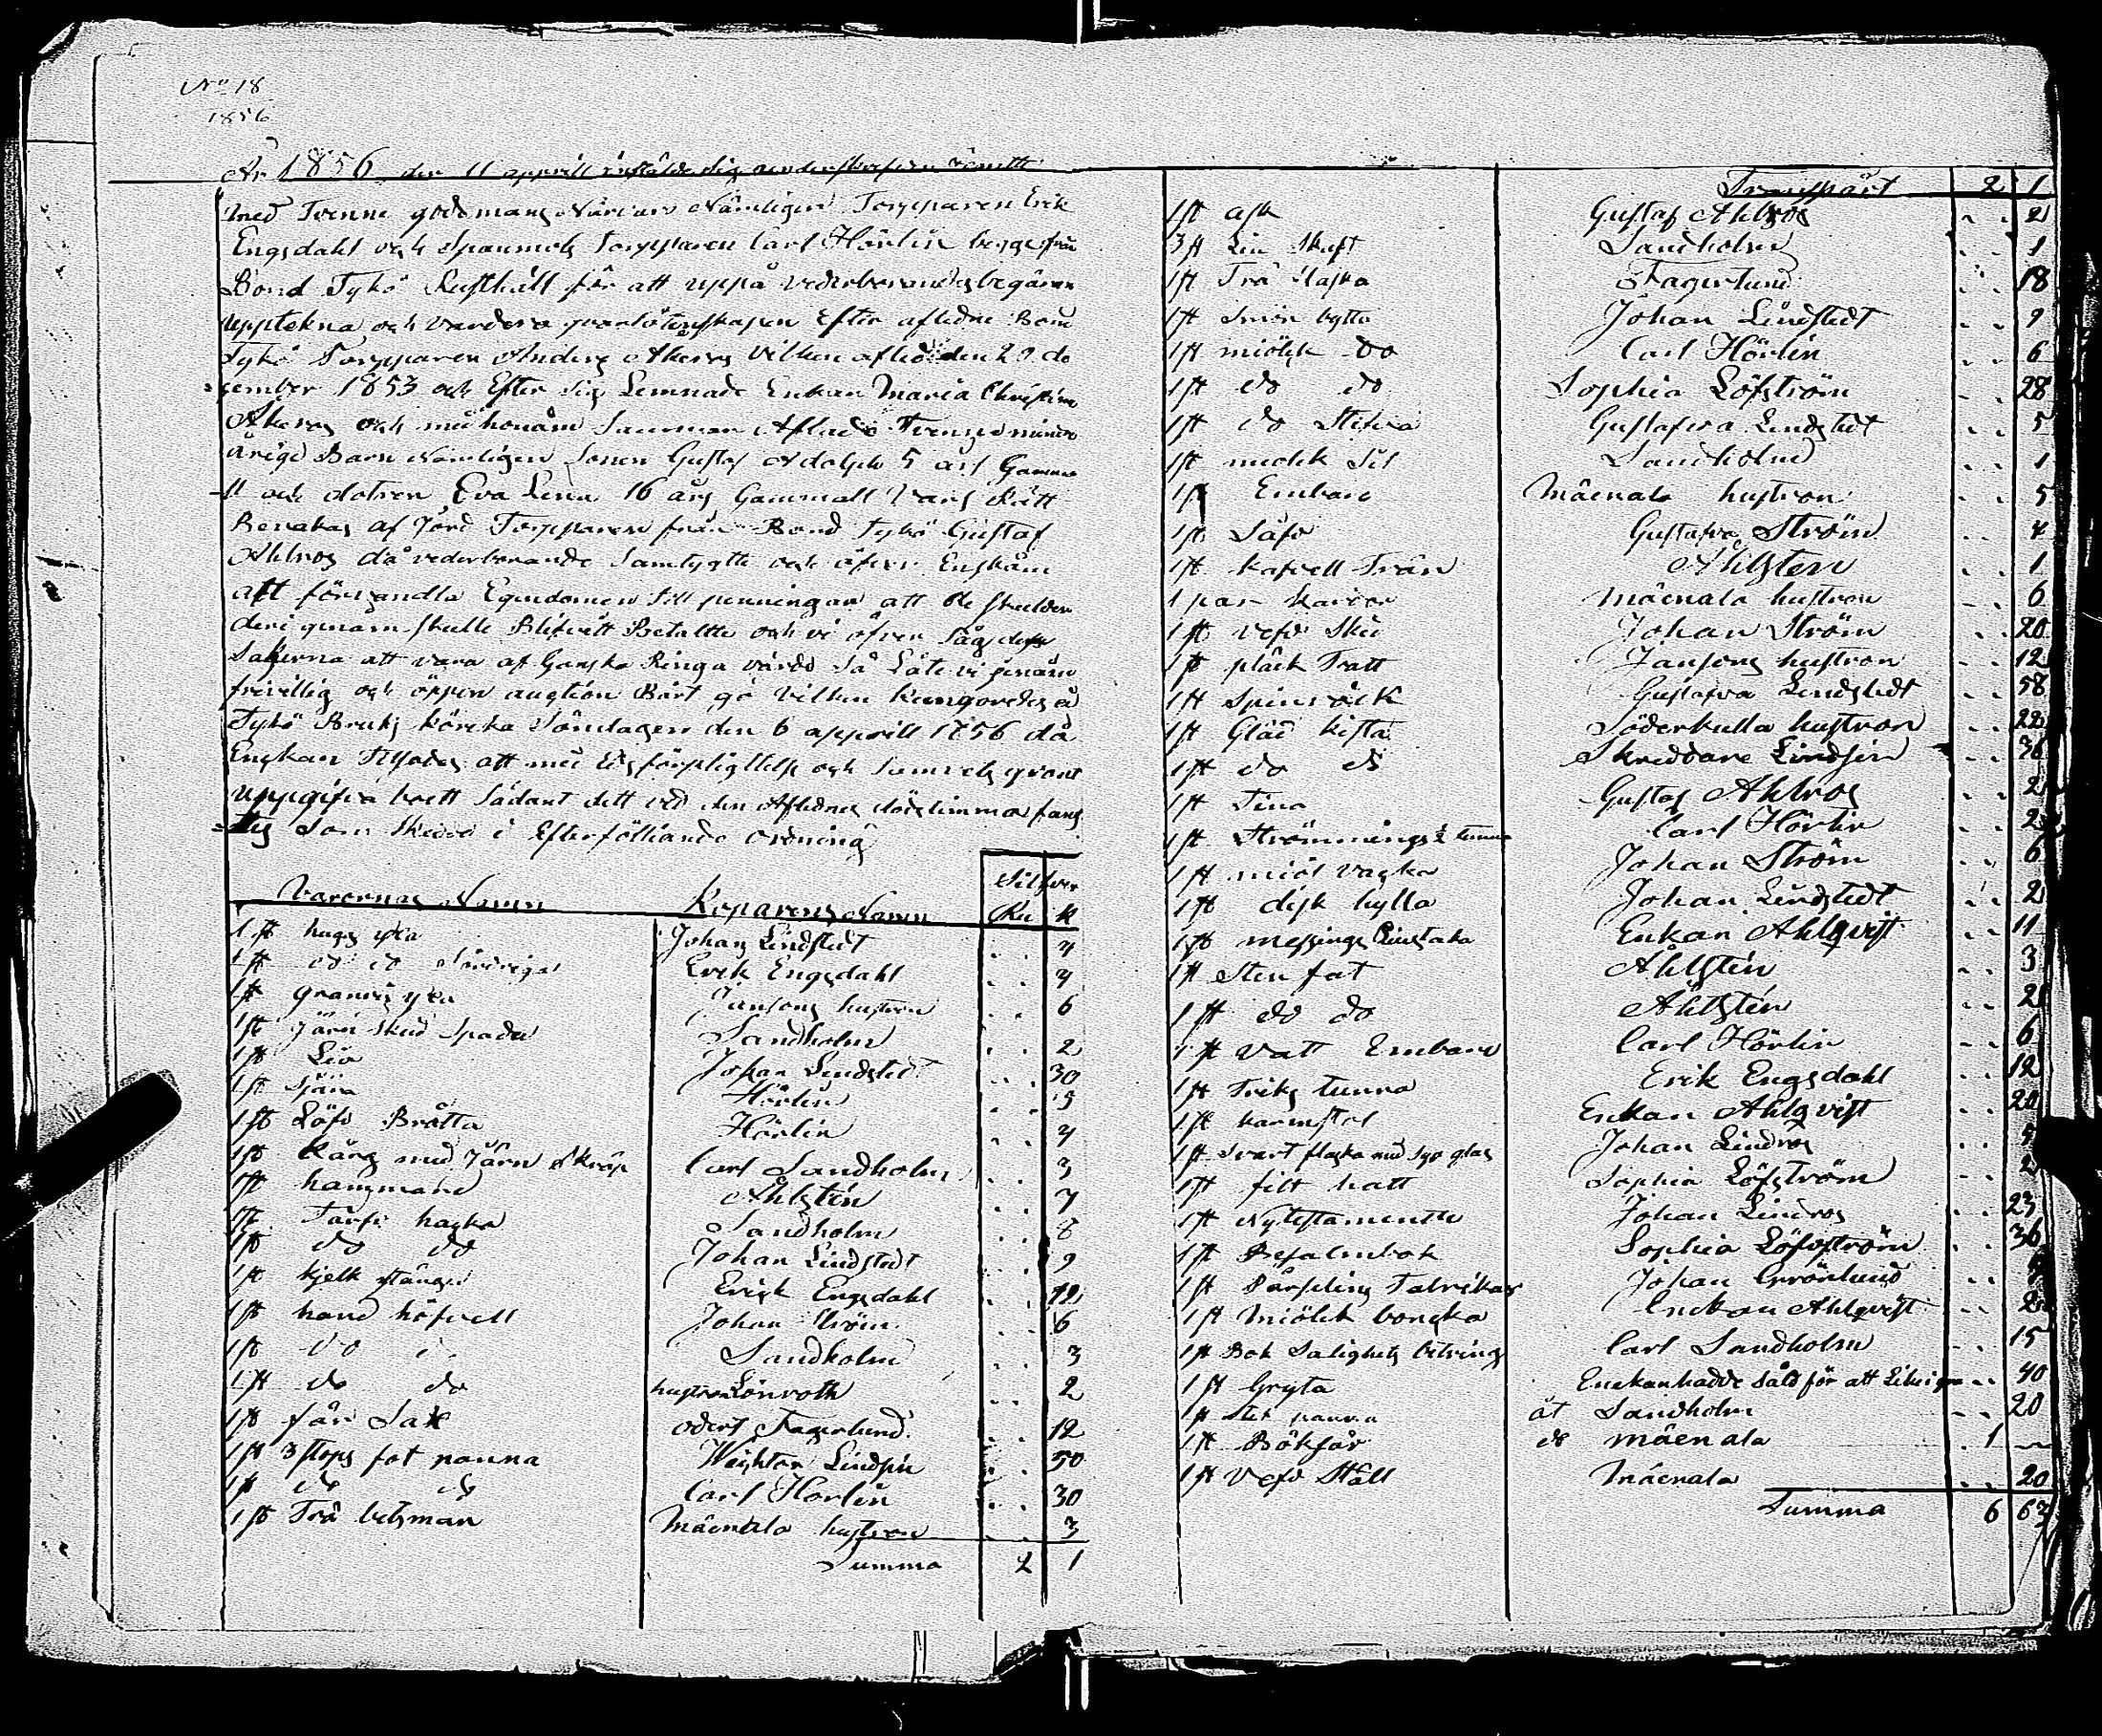 No 18
1856
År 1856 den 11 apprill instälde sig underskrefven jemtte
med Tvenne godemans Närvaro Nämligen Torpparen Erik
Engsdahl och Torpparen Carl Hörlin begge från
Bond Tykö Rusthåll för att uppå vederborandes begäran
upptekna och vardera qvarlåtenskapen Efter aflidne Bond
Tykö Torpparen Anders Åkeros vilken afled den 29 de
=cember 1853 och Efter sig Lemnade Enkan Maria Christina
Åkeros och med honåm Samman Aflade Trenne minder
årige Barn Nämligen Sonen Gustaf Adolph 5 års Gamma
=ll och dotren Eva Lena 16 års Gammall Vars Rätt
Bevakas af Jord Torpparen från Bond Tykö Gustaf
Ahlros då vederborande Samtygtte och äfven Enskåm
att förvandla Egendomen till penningar att de skulder
deri genam skulle Blifvitt Betaltte och vi äfven såg
Sakerna att vara af Ganska Ringa värde Så Låte vi genåm
frivillig och öppen auqtion Bårt gå vilken kungordes i
Tykö Bruks körcka Söndagen den 6 apprill 1856 då
Enskan Tillsades att med Edsförpligttelse och Samvets grant
uppgifva boett Sådant dett ved den Aflednes dödstimma fans
=tig Som Skedde i Efterfölliande ordning
Silfver
Varornas NamnKöparens Namn Ru k
1 st hugg yxa Johan Lindstedt . . 4
1 st do do Erik Engsdahl . . 4
1 st yxa Jansons hustron . . 6
1 st Järn skod Spada Sandholm . . 2
1 st Lia Johan Lindstedt . . 30
1 st Hörlin . . 5
1 st Löf Bråtta Hörlin . . 4
1 st kårg med Järn Skråp Carl Sandholm . . 3
1 st Åhlstén . . 7
1 st hacka Sandholm . . 8
1 st do do Johan Lindstedt . . 9
1 st kjelk stånger Erick Engsdahl . . 12
1 st hand höfvell Johan Ström . . 6
1 st do Sandholm . . 3
1 st do do hustron Lönroth . . 2
1 st får Sax Fagerlund . . 12
1 st 3 stops fot panna Lindsén . . 50
1 st do do Carl Hörlin . . 30
1 st Trä betsman Mäenala hustron . . 3
Summa 2 1
Transpårt 2 1
1 st ask Gustaf Ahlros . . 2
3 st Lin Skaft Sandholm . . 1
1 st Trä flaska Fagerlund . . 18
1 st Smör bytta Johan Lindstedt . . 9
1 st miölck do Carl Hörlin . . 6
1 st do do Sophia Löfström . . 28
1 st do Gustafva Lindstedt . . 5
1 st miolck Sil Sandholm . . 1
1 st Embare Mäenala hustron . . 5
1 st Gustafva Ström . . 4
1 st kafvell Trän Åhlsten . . 1
1 par kardor Mäenala hustron . . 6
1 st vefv Sked Johan Ström . . 20
1 st pläck Tratt Jansons hustron . . 12
1 st Spinråck Gustafva Lindstedt . . 58
1 st Gläd kista Söderkulla hustron . . 22
1 st do do Skreddare Lindsén . . 36
1 st Tina Gustaf Ahlros . . 2
1 st Strömmings ½ tunna Carl Hörlin . . 2
1 st miöl vacka Johan Ström . . 6
1 st disk hylla Johan Lindstedt . . 2
1 st messings Liustaka Enkan Ahlqvist . . 11
1 st Sten fat Åhlstén . . 3
1 st do do Åhlstén . . 2
1 st vatt Embare Carl Hörlin . . 6
1 st Triks tunna Erik Engsdahl . . 12
1 st karmstol Enkan Ahlqvist . . 20
1 st Svart flaska med syp glas Johan Lindros
1 st filt hatt Sophia Löfström . . 2
1 st Nytestamentte Johan Lindros . . 23
1 st Psalmbok Sophia Löfström . . 36
1 st Pårsling Talrikar Johan Grönlund
1 st Miölck bonka Enckan Ahlqvist . . 2
1 st Bok Salighets Carl Sandholm . . 15
1 st Gryta Enckan hadde såld för att . . 40
1 st panna åt Sandholm . . 20
1 st do Mäenala . 1 –
1 st vefv Ståll Mäenala . . 20
Summa 6 63